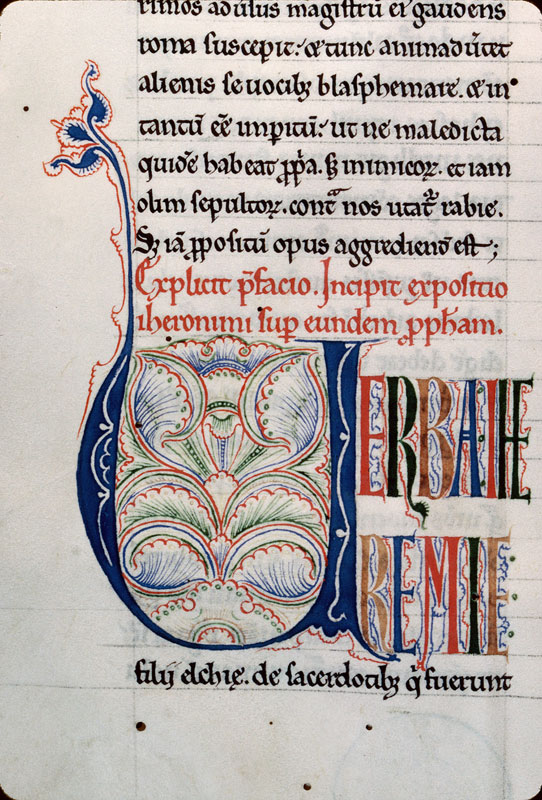 rimos adultus magistrū ei gaudens
roma suscepit: ⁊ tunc animadūtet
alienis se uocibꝫ blasphemare. ⁊ in
tantū eē̄ imꝑitū: ut ne maledicta
quidē habeat ꝓpͥa. sꝫ inimicoꝝ. et iam
olim sepultoꝝ. cont̄ᵃ nos utat᷑ rabie.
Sꝫ iā ꝓpositū opus aggrediendū est;
Explicit p̄facio. Incipit expositio
iheronimi suꝑ eundem ꝓph̄am.
VERBA IHE
REMIE
filij elchię. de sacerdotibꝫ qͥ fuerunt